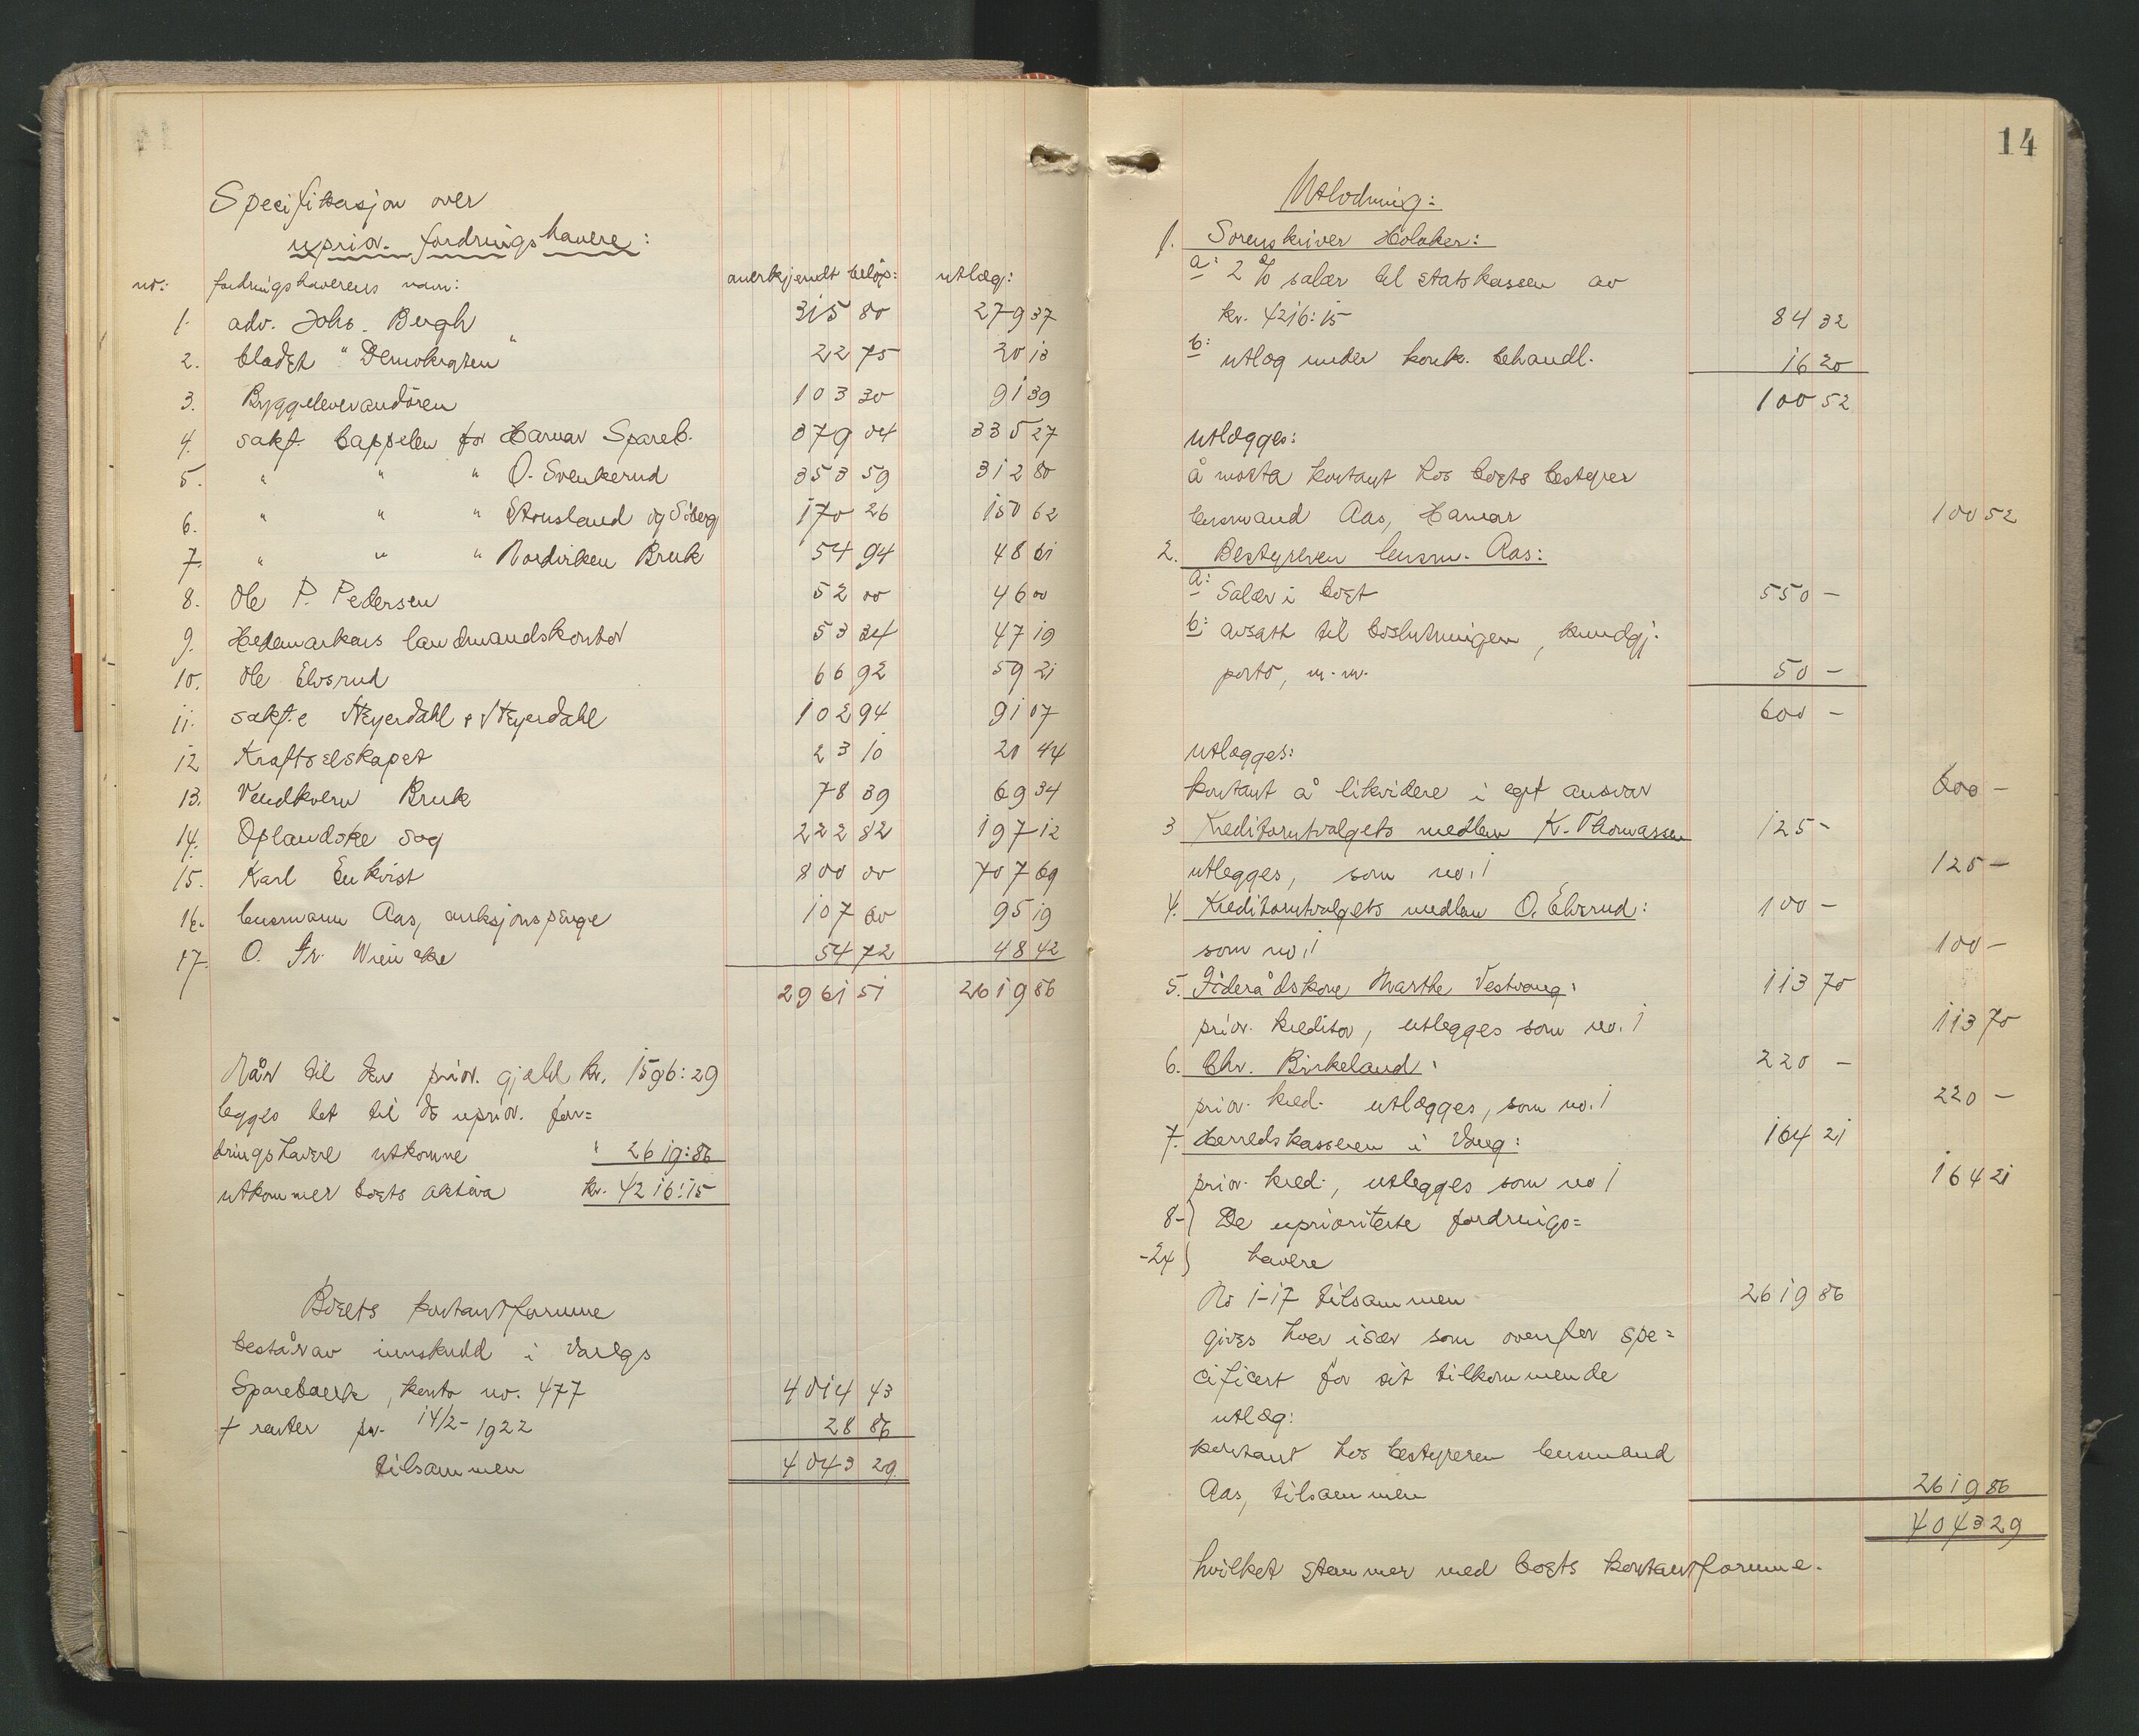 Specifikasjon over
uprior. fordringshavere:
nr: fordringshaverens navn: anerkjendt beløp: utlæg:
1. adv. Johs. Bergh 315 80 279 37
2. bladet "Demokraten" 22 75 20 13
3. Byggeleverandören 103 30 91 39
4. sakf. Cappelen for Hamar Spareb. 379 04 335 27
5. " " " O. Svenkerud 353 59 312 80
6. " " " Stousland og Söberg 170 26 150 62
7. " " " Nordviken Bruk 54 94 48 61
8. Ole P. Pedersen 52 00 46 00
9. Hedemarkens landmandskontor 53 34 47 19
10. Ole Elvsrud 66 92 59 21
11. sakf.e Heyerdahl & Heyerdahl 102 94 91 07
12 Kraftselskapet 23 10 20 44
13. Vendkvern Bruk 78 39 69 34
14. Oplandske Sag 222 82 197 12
15. Karl Enkvist 800 00 707 69
16. lensmann Aas, auksjonspenge 107 60 95 19
17. O. Fr. Wiencke 54 72 48 42
2961 51 2619 86
Når til den prior. gjæld kr. 1596:29
legges det til de uprior. for=
dringshavere utkomne " 2619:86
utkommer boets aktiva kr. 4216:15
Boets kontantformue
består av innskudd i Vangs
Sparebank, konto no. 477 4014 43
+ renter pr. 14/2-1922 28 86
tilsammen 4043 29
14
Utlodning:
1. Sorenskriver Holaker:
a: 2 % salær til statskassen av
kr. 4216:15 84 32
b: utlæg under konk. behandl. 16 20
100 52
utlægges:
å motta kontant hos boets bestyrer
lensmand Aas, Hamar 100 52
2. Bestyreren lensm. Aas:
a: Salær i boet 550 -
b: avsatt til boslutningen, kundgj.
porto, m.m. 50 -
600 -
utlægges:
kontant å likvidere i eget ansvar 600 -
3 Kreditorutvalgets medlem K. Thomassen 125 -
utlegges, som no. 1 125 -
4. Kreditorutvalgets medlem O. Elvsrud: 100 -
som no. 1 100 -
5. Föderådskone Marthe Vestvang: 113 70
prior. kreditor, utlegges som no. 1 113 70
6. Chr. Birkeland: 220 -
prior. kred. utlægges, som no. 1 220 -
7. Herredskassen i Vang: 164 21
prior. kred., utlegges som no 1 164 21
8-) De uprioriterte fordrings=
-24) havere
No 1-17 tilsammen 2619 86
gives hver især som ovenfor spe=
cificert for sit tilkommende
utlæg:
kontant hos bestyreren lensmand
Aas, tilsammen 2619 86
4043 29
hvilket stemmer med boets kontantformue.